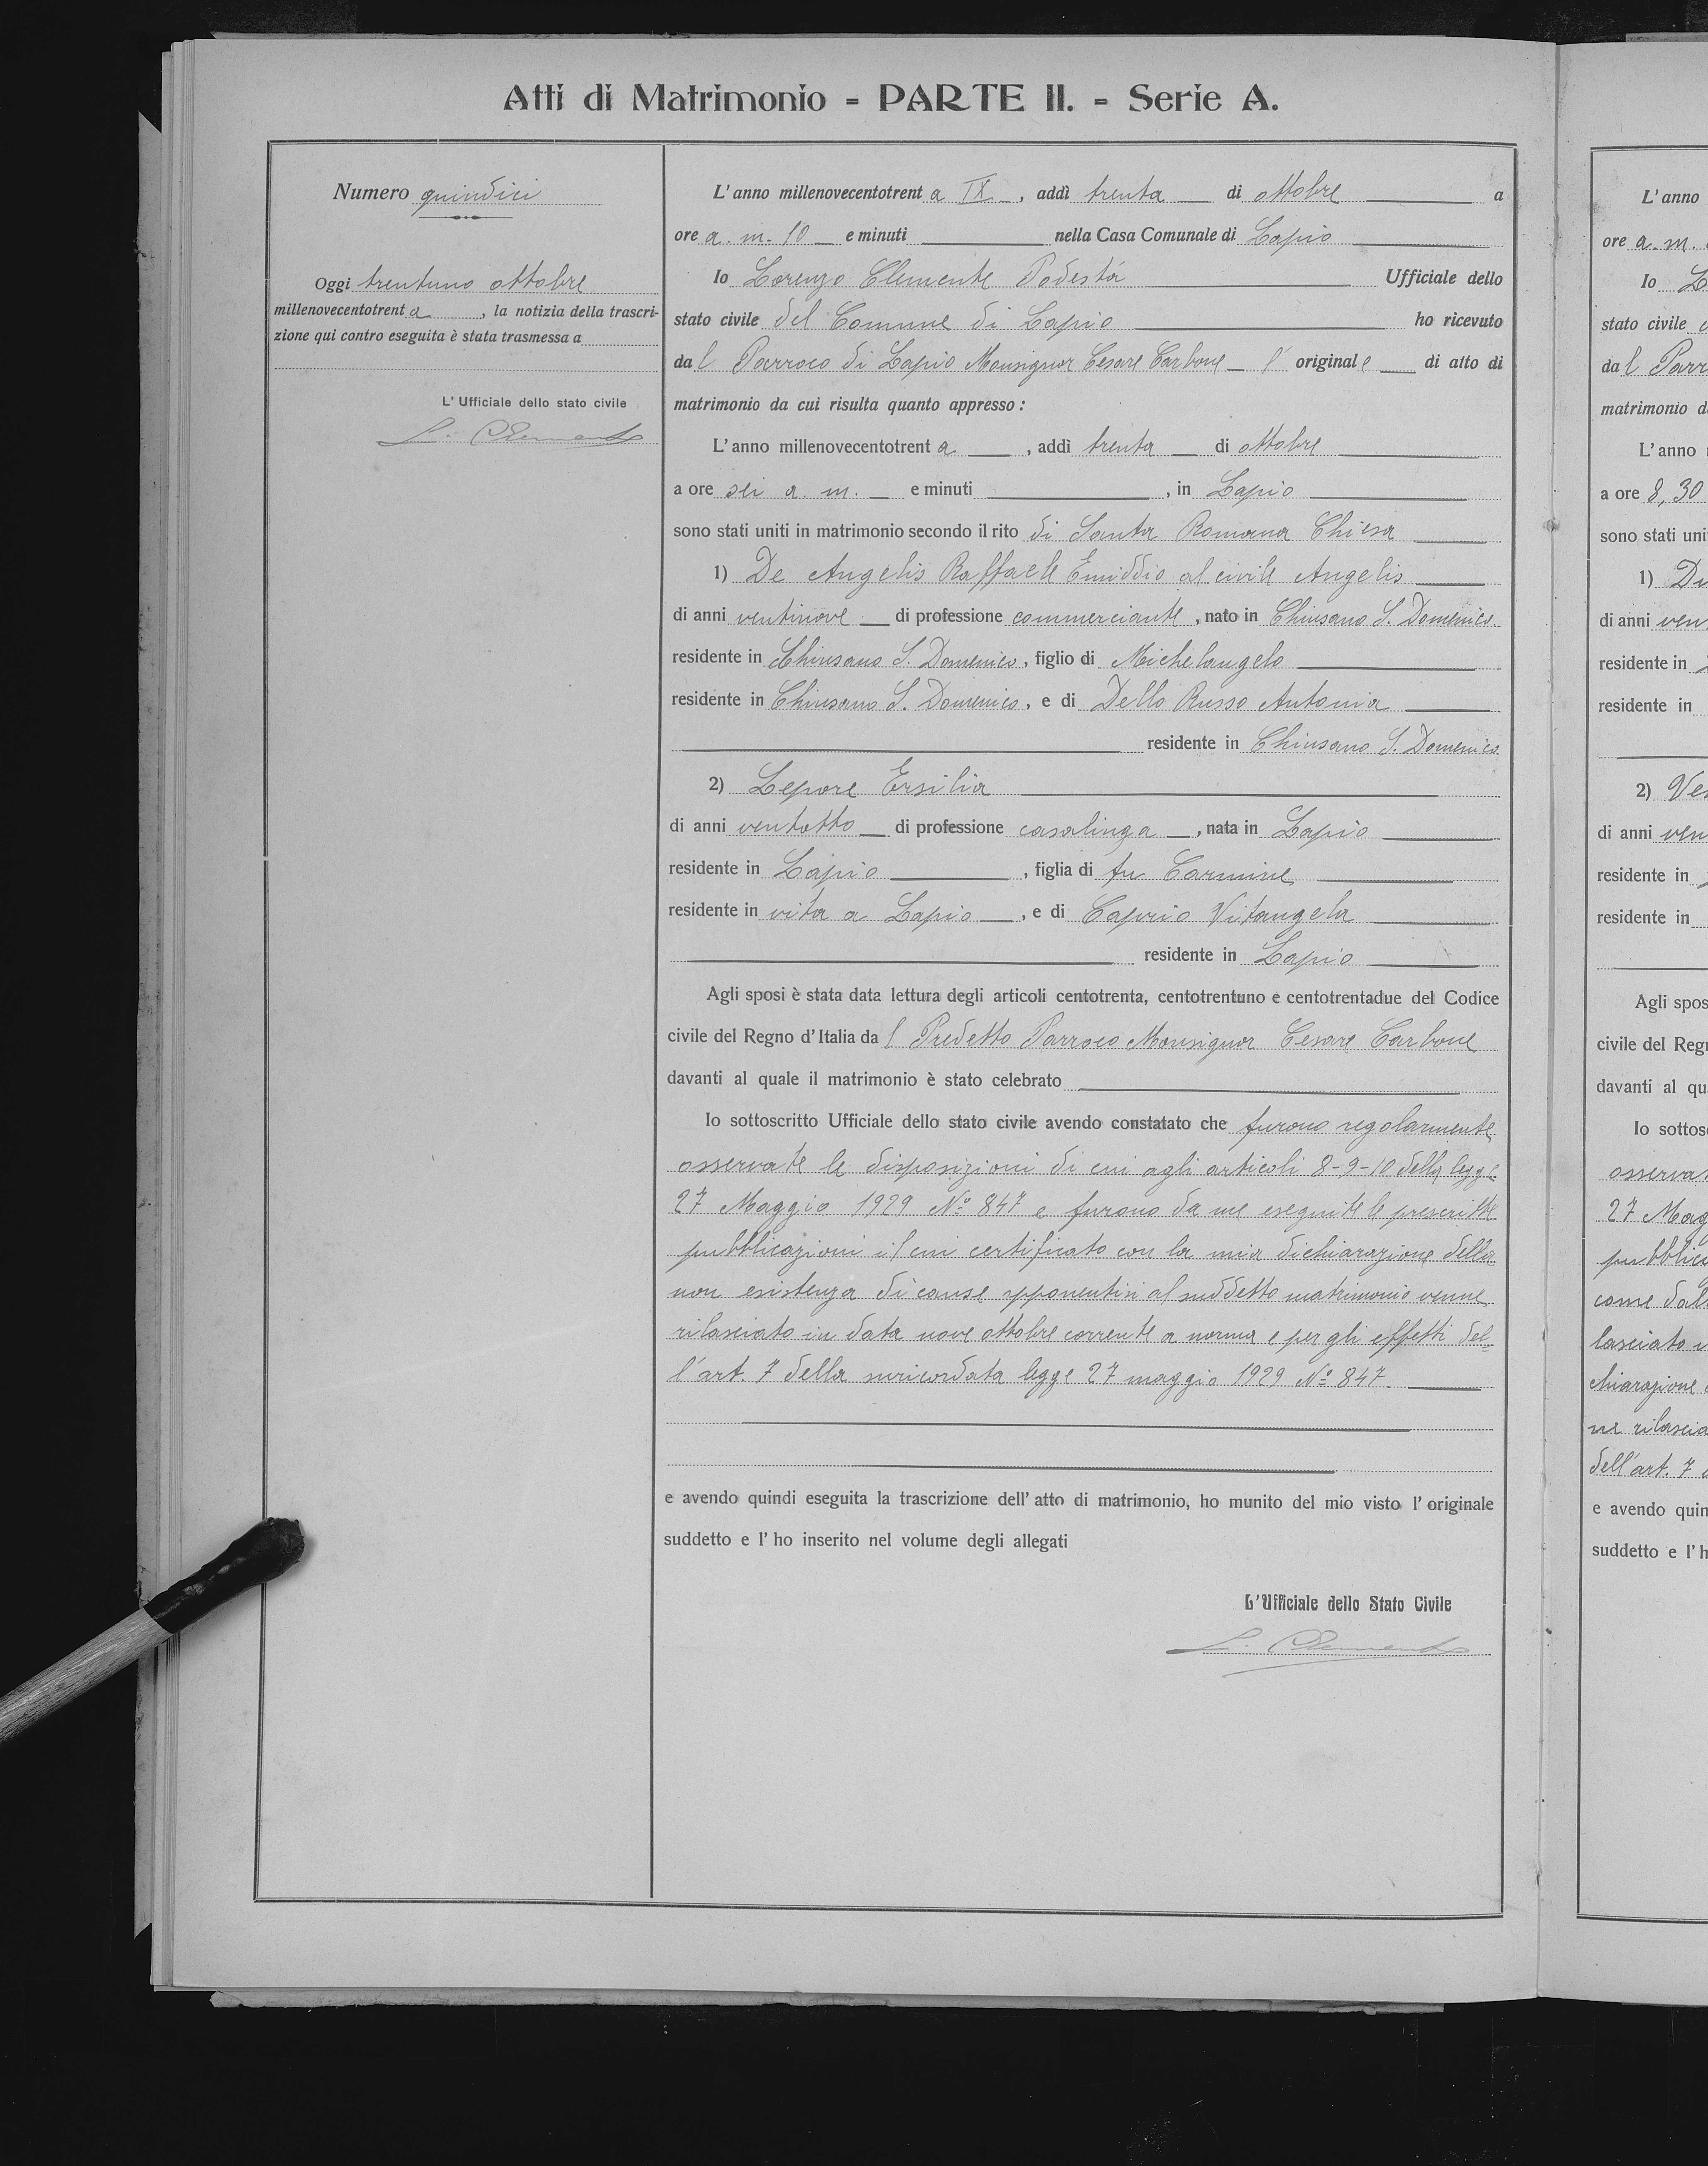 Atti di Matrimonio - PARTE II. - Serie A.
Numero quindici
Oggi trentuno ottobre
millenovecentotrent a , la notizia della trascri-
zione qui contro eseguita è stata trasmessa a
L'Ufficiale dello stato civile
L. Clemente
L'anno millenovecentotrent a IX , addì trenta di ottobre a
ore a. m. 10 e minuti nella Casa Comunale di Lapio
Io Lorenzo Clemente Podestà Ufficiale dello
stato civile del Comune di Lapio ho ricevuto
da l Parroco di Lapio Monsignor Cesare Carbone l' original e di atto di
matrimonio da cui risulta quanto appresso :
L'anno millenovecentotrent a , addì trenta di ottobre
a ore sei a. m. e minuti , in Lapio
sono stati uniti in matrimonio secondo il rito di Santa Romana Chiesa
1) De Angelis Raffaele Emiddio al civile Angelis
di anni ventinove di professione commerciante , nato in Chiusano S. Domenico
residente in Chiusano S. Domenico , figlio di Michelangelo
residente in Chiusano S. Domenico , e di Dello Russo Antonia
residente in Chiusano S. Domenico
2) Lepore Ersilia
di anni ventotto di professione casalinga , nata in Lapio
residente in Lapio , figlia di fu Carmine
residente in vita a Lapio , e di Caprio Vitangela
residente in Lapio
Agli sposi è stata data lettura degli articoli centotrenta, centotrentuno e centotrentadue del Codice
civile del Regno d'Italia da l Predetto Parroco Monsignor Cesare Carbone
davanti al quale il matrimonio è stato celebrato
Io sottoscritto Ufficiale dello stato civile avendo constatato che furono regolarmente
osservate le disposizioni di cui agli articoli 8-9-10 della legge
27 Maggio 1929 Nº 847 e furono da me eseguite le prescritte
pubblicazioni il cui certificato con la mia dichiarazione della
non esistenza di cause opponentisi al suddetto matrimonio venne
rilasciato in data nove ottobre corrente a norma e per gli effetti del
l'art. 7 della suricordata legge 27 maggio 1929 Nº 847
e avendo quindi eseguita la trascrizione dell'atto di matrimonio, ho munito del mio visto l'originale
suddetto e l'ho inserito nel volume degli allegati
L'Ufficiale dello Stato Civile
L. Clemente
L'anno
ore a. m.
Io L
stato civile
da l Parr
matrimonio d
L'anno
a ore 8,30
sono stati uni
1) D
di anni ven
residente in
residente in
2) Ve
di anni ven
residente in
residente in
Agli spos
civile del Regn
davanti al qu
Io sottosc
osserva
27 Mag
pubblic
come dal
lasciato
chiarazione
ne rilascia
dell'art. 7
e avendo quin
suddetto e l'h